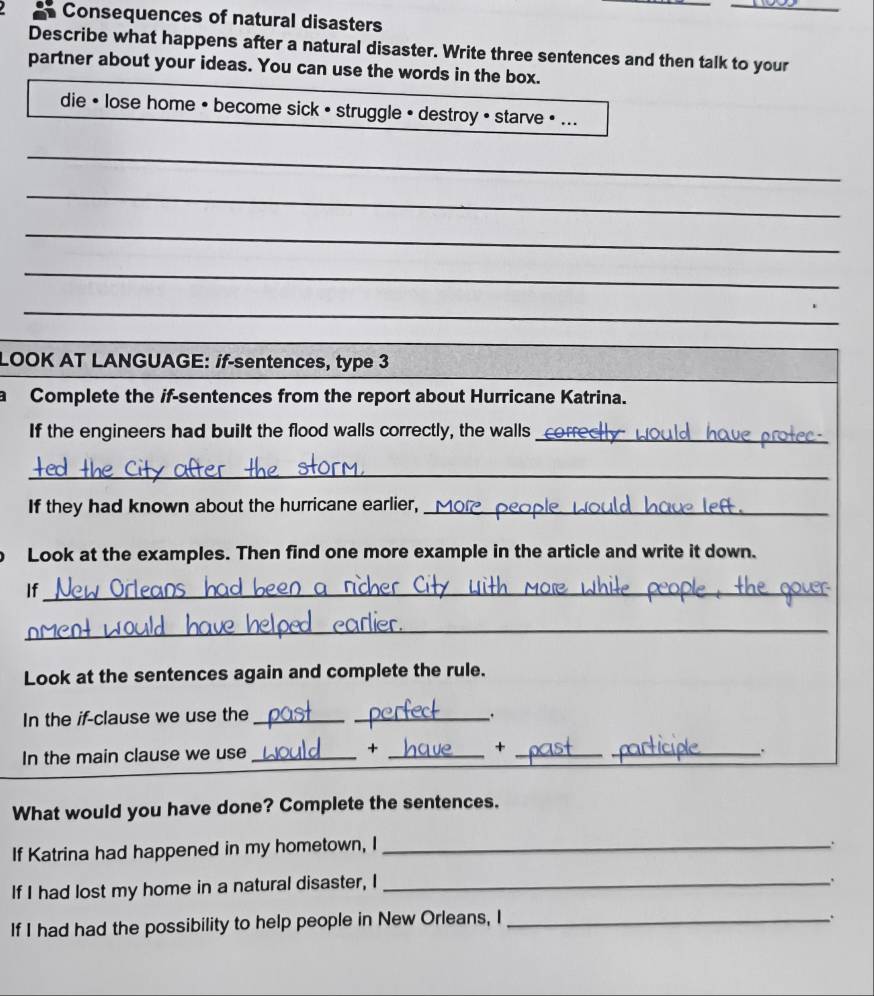 Consequences of natural disasters
Describe what happens after a natural disaster. Write three sentences and then talk to your
partner about your ideas. You can use the words in the box.
die • lose home • become sick • struggle • destroy • starve • ...
LOOK AT LANGUAGE: if-sentences, type 3
a Complete the if-sentences from the report about Hurricane Katrina.
If the engineers had built the flood walls correctly, the walls correctly would have protec-
ted the City after the storm.
If they had known about the hurricane earlier, More people would have left.
Look at the examples. Then find one more example in the article and write it down.
If New Orleans had been a richer City with More White people, the gover-
nment would have helped earlier.
Look at the sentences again and complete the rule.
In the if-clause we use the past perfect.
In the main clause we use would + have + past participle.
What would you have done? Complete the sentences.
If Katrina had happened in my hometown, I .
If I had lost my home in a natural disaster, I .
If I had had the possibility to help people in New Orleans, I .